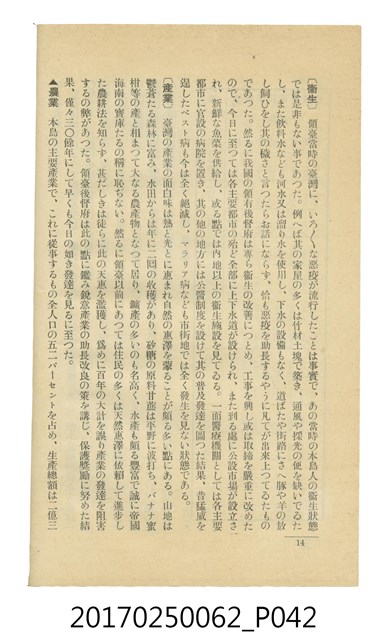 〔衞生〕　領臺當時の臺灣に、いろ〳〵な惡疫が流行したことは事實で、あの當時の本島人の衞生狀態
では是非もない事であつた。例へば其の家屋の多くは竹材土塊で築き、通風や採光の便を缺いでるた
し、また飮料水なども河水又は溜り水を使用し、下水の設備もなく、道ばたや街路にさへ豚や羊の放
し飼ひをし其の穢さと言つたらお話にならず、恰も惡疫を助長するやうに凡てが出來上つてるたもの
であつた。然るに我國の領有後督府は專ら衞生の改善につとめ、工事を興し或は取締を嚴重に改めた
ので、今日に至つては各主要都市の殆ど各部に上下水道が設けられ、また到る處に公設市場が設立さ
れ、新鮮な魚菜を供給し、或る點では內地以上の衞生施設を見てゐる。一面醫療機關としては各主要
都市に官設の病院を置き、其の他の地方には公醫制度を設けて其の普及發達を圖つた結果、昔猛威を
逞したペスト病も今は全く絕滅し、マラリア病なども市街地では全く發生を見ない狀態である。
〔產業〕　臺灣の產業の面白味は熱と光とに惠まれ自然の惠澤を蒙ることが頗る多い點にある。山地は
鬱蒼たる森林に富み、水田からは年に二囘の收穫があり、砂糖の原料甘蔗は平野に波打ち、バナナ蜜
柑等の產と相まつて大なる農產物となつて居り、鑛產の多いのも名高く、水產も頗る豐富で誠に帝國
海南の寶庫たるの稱に恥ぢない。然るに領臺以前にあつては住民の多くは天然惠澤に依賴して進步し
た農耕法を知らず、甚だしきは徒らに此の天惠を濫獲し、爲めに百年の大計を誤り產業の發達を阻害
するの弊があつた。領臺後督府は此の點に鑑み銳意產業の助長改良の策を講じ、保護獎勵に努めた結
果、僅々三〇餘年にして早くも今日の如き發達を見るに至つた。
▲農業　本島の主要產業で、これに從事するもの全人口の五二パーセントを占め、生產總額は二億三
14
20170250062_P042